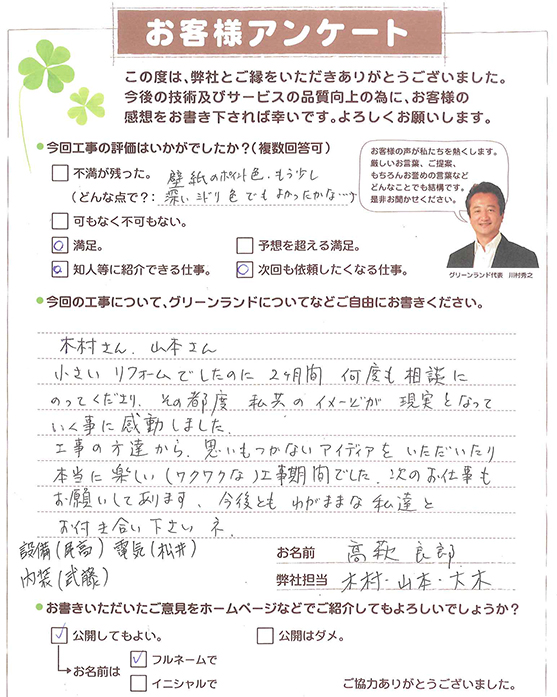 お客様アンケート
この度は、弊社とご縁をいただきありがとうございました。
今後の技術及びサービスの品質向上の為に、お客様の
感想をお書き下されば幸いです。よろしくお願いします。
今回工事の評価はいかがでしたか？(複数回答可)
不満が残った。 壁紙のポイント色.もう少し
(どんな点で？: 深いミドリ色でもよかったかな…)
可もなく不可もなく。
満足。
予想を超える満足。
知人等に紹介できる仕事。
次回も依頼したくなる仕事。
お客様の声が私たちを熱くします。
厳しいお言葉、ご提案、
もちろんお誉めの言葉など
どんなことでも結構です。
是非お聞かせください。
グリーンランド代表 川村秀之
今回の工事について、グリーンランドについてなどご自由にお書きください。
木村さん. 山本さん
小さい リフォームでしたのに 2ヶ月間 何度も相談に
のってくださり. その都度 私共のイメージが 現実となって
いく事に感動しました.
工事の方達から. 思いもつかないアイディアを いただいたり
本当に楽しい(ワクワクな)工事期間でした. 次のお仕事も
お願いしてあります. 今後とも わがままな私達と
お付き合い下さい ネ.
設備() 電気(松井)
内装(武藤)
お名前 高萩 良郎
弊社担当 木村・山本・大木
お書きいただいたご意見をホームページなどでご紹介してもよろしいでしょうか？
公開してもよい。
公開はダメ。
お名前は
フルネームで
イニシャルで
ご協力ありがとうございました。